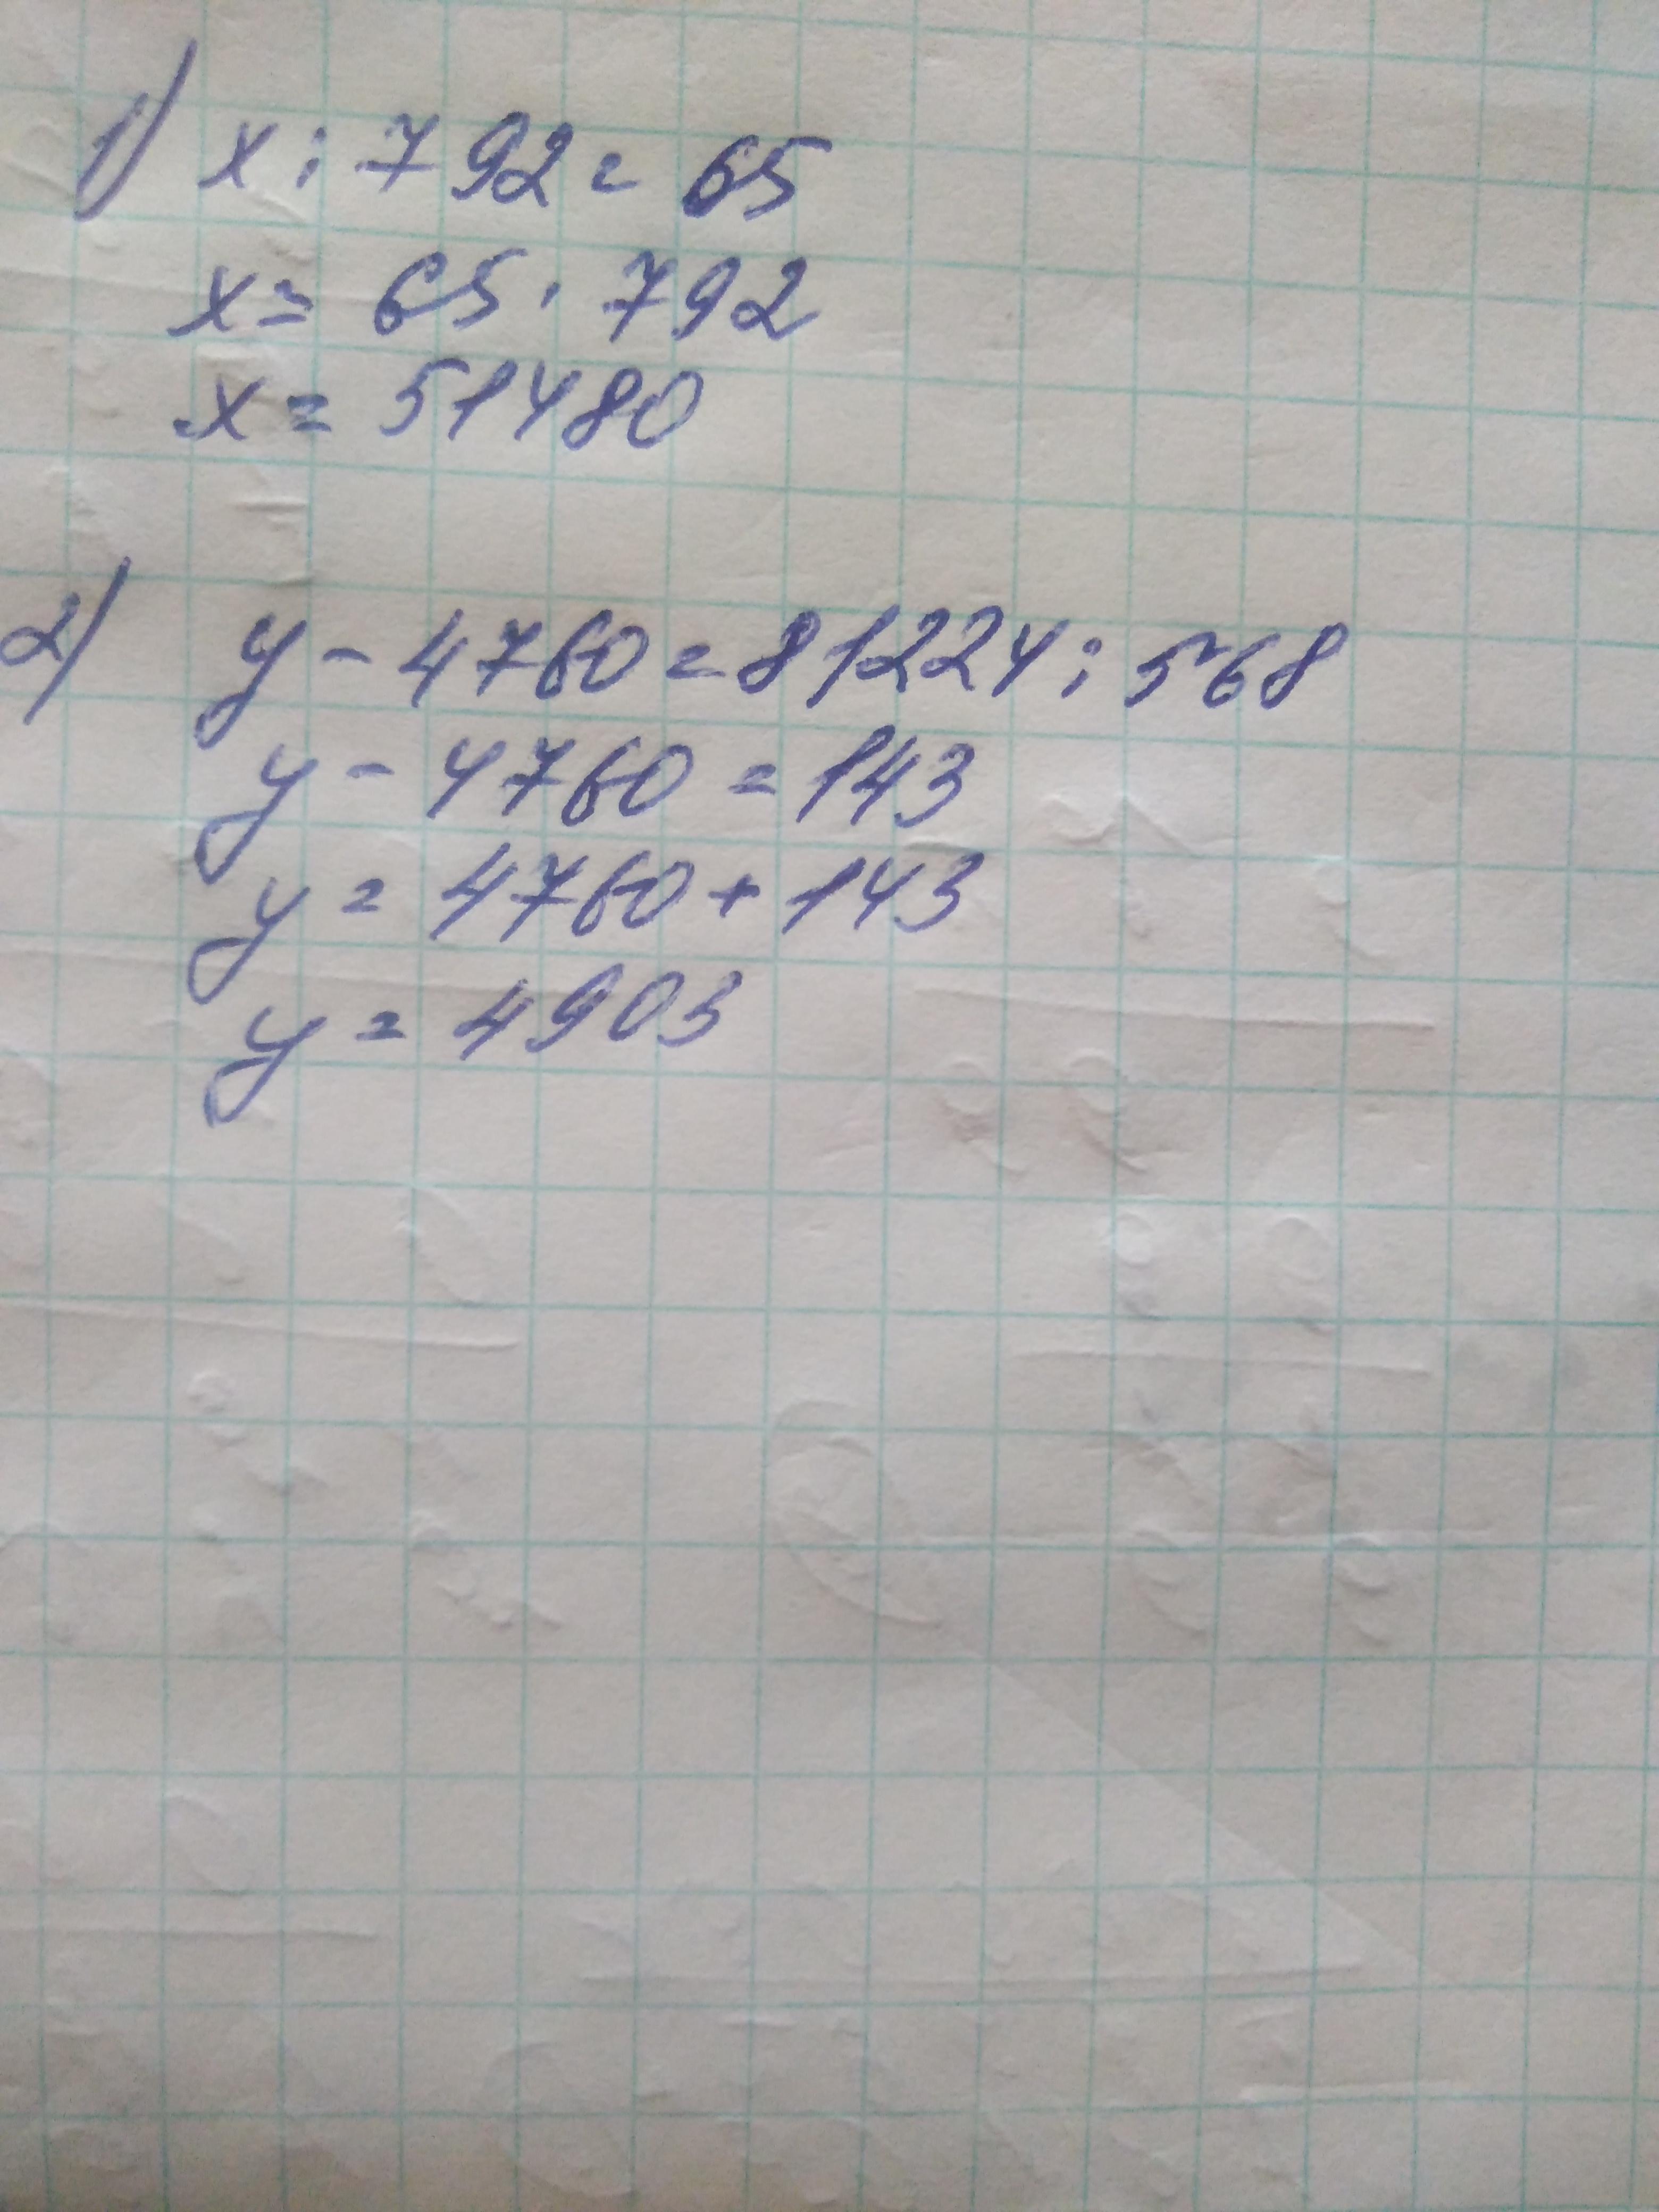 1) x : 792 = 65
x = 65 · 792
x = 51480
2) y - 4760 = 81224 : 568
y - 4760 = 143
y = 4760 + 143
y = 4903